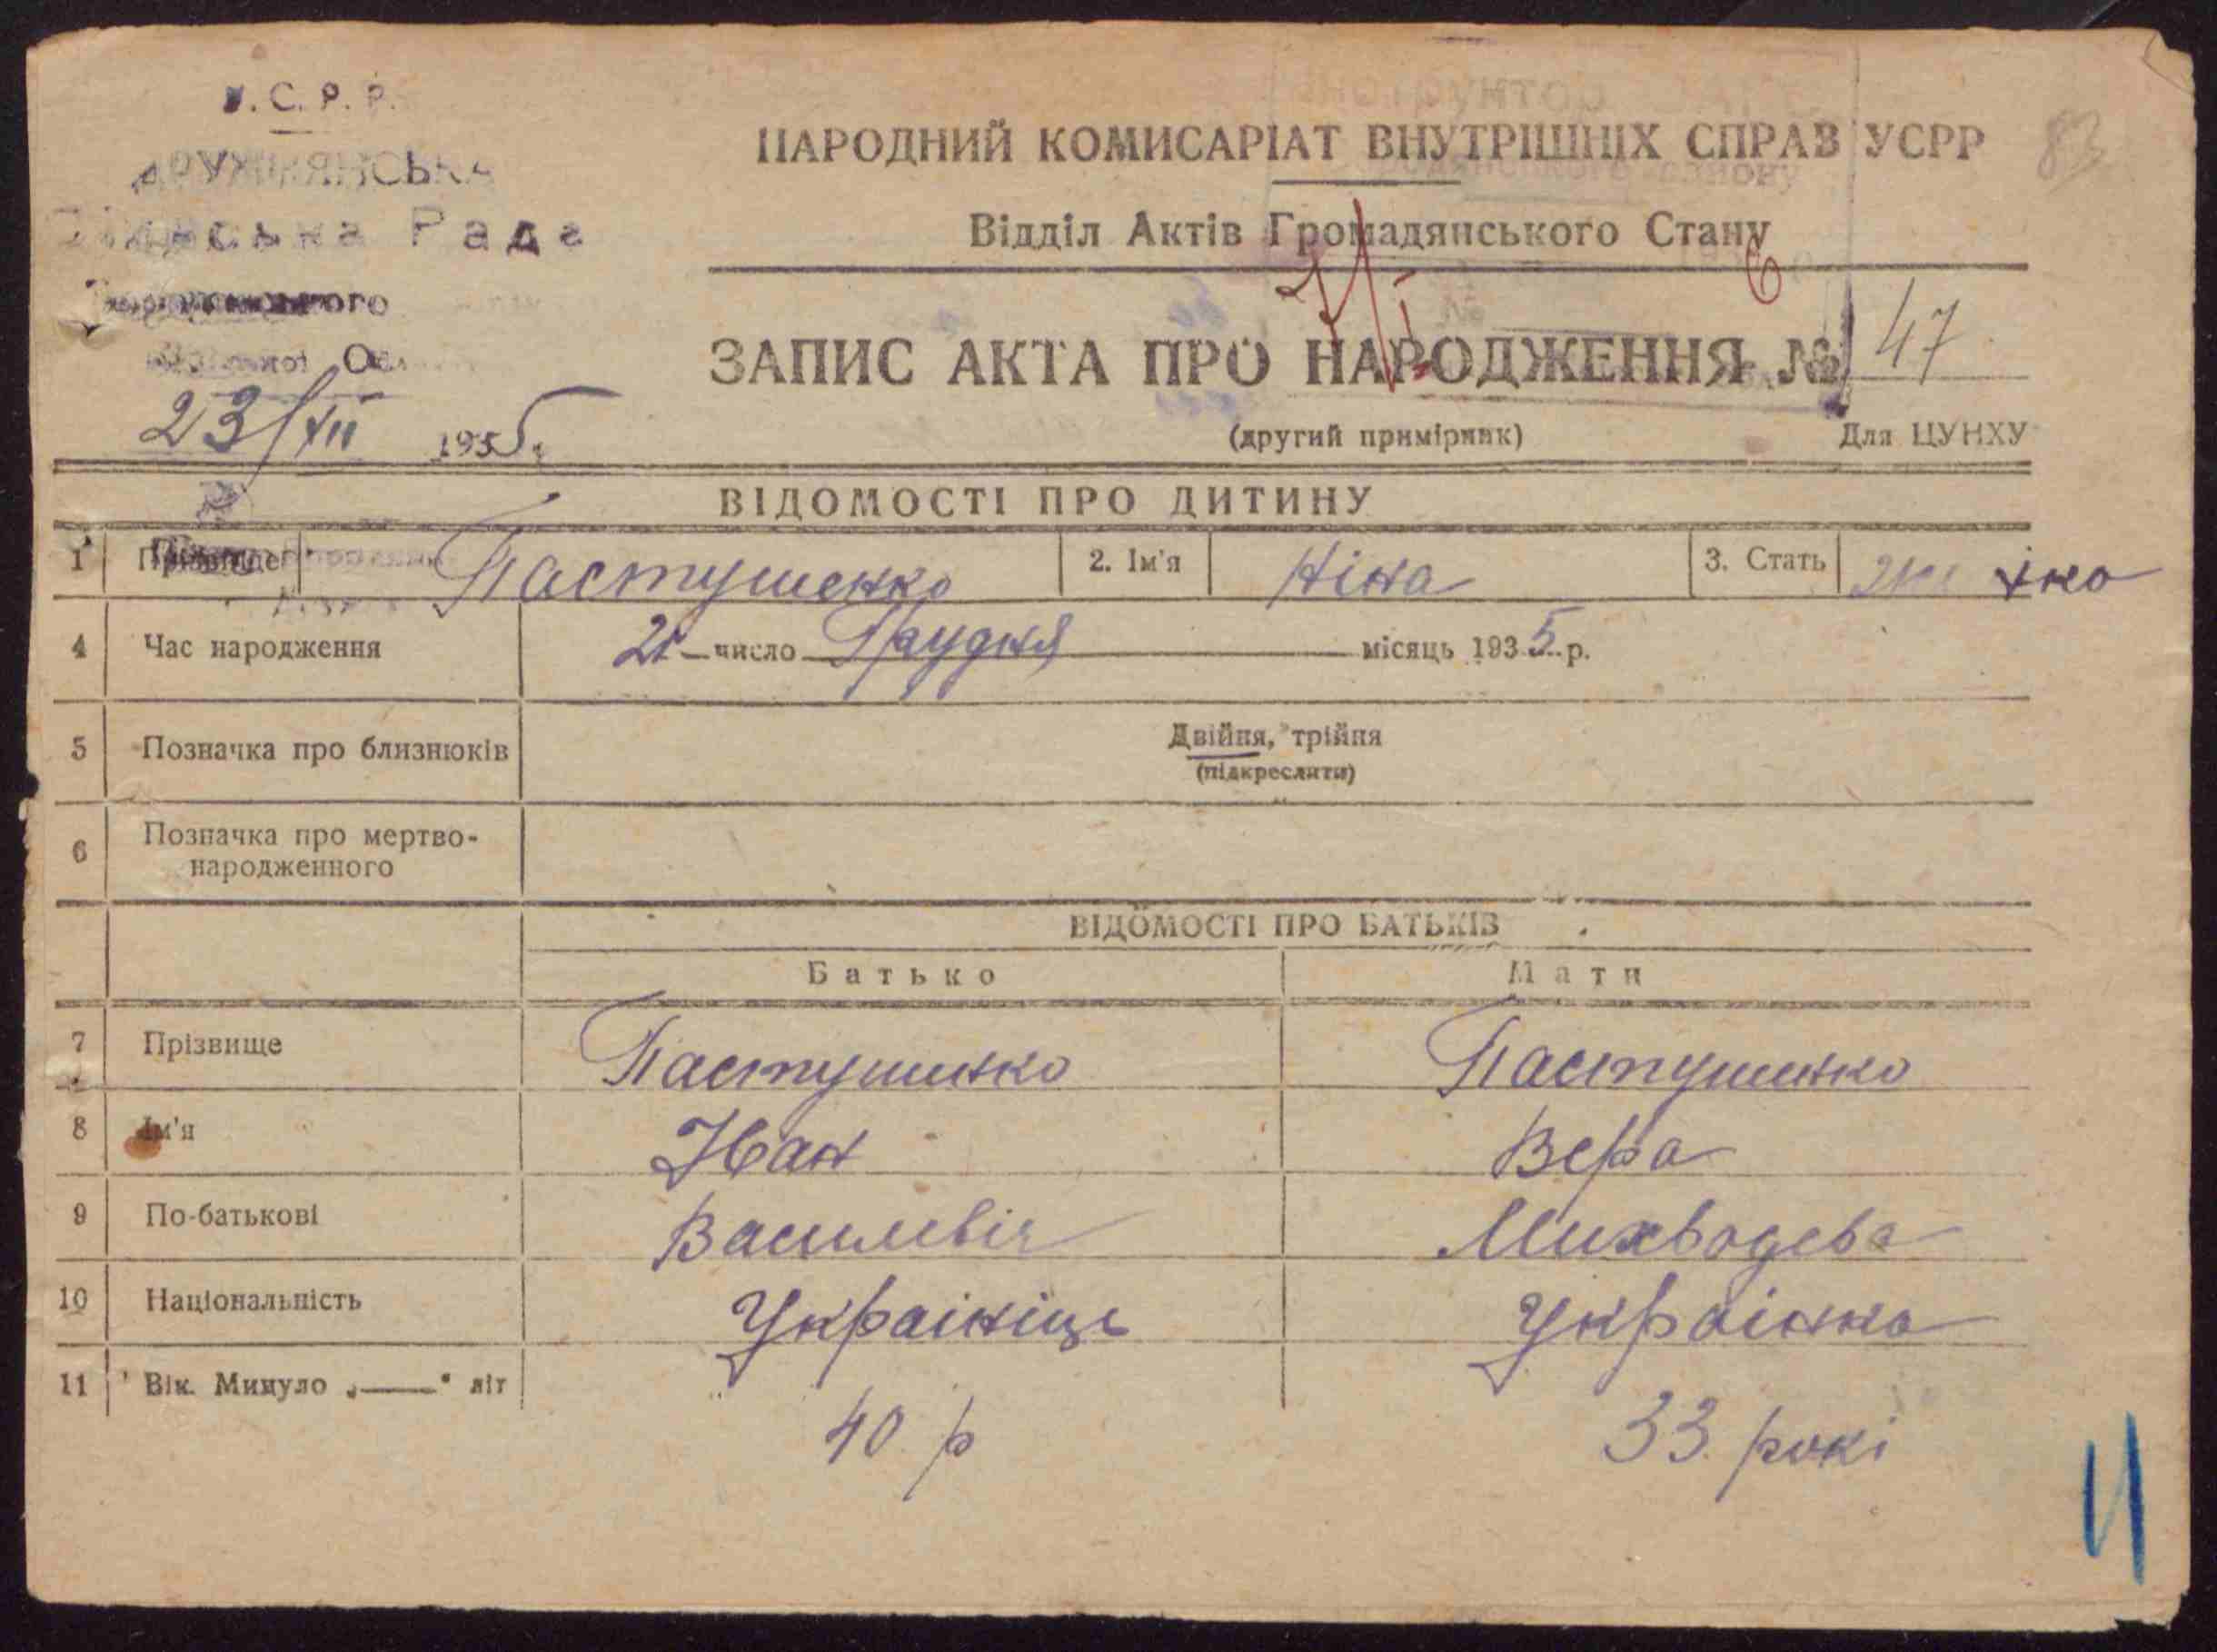 У.С.Р.Р.
ДРУЖНЯНСЬКА
Рада
23/XII 1935 р.
НАРОДНИЙ КОМИСАРІАТ ВНУТРІШНІХ СПРАВ УСРР
83
Відділ Актів Громадянського Стану
ЗАПИС АКТА ПРО НАРОДЖЕННЯ № 47
(другий примірник) Для ЦУНХУ
ВІДОМОСТІ ПРО ДИТИНУ
1 Прізвище Пастушенко 2. Ім'я Ніна 3. Стать
4 Час народження 21 число Грудня місяць 1935 р.
5 Позначка про близнюків Двійня, трійня
(підкреслити)
6 Позначка про мертво-
народженного
ВІДОМОСТІ ПРО БАТЬКІВ
Батько Мати
7 Прізвище Пастушенко Пастушенко
8 Ім'я Іван Вера
9 По-батькові Василевіч
10 Національність Украініць Украінка
11 Вік. Минуло „——" літ 40 р 33. рокі